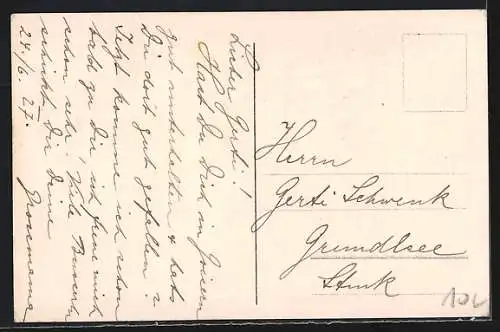 Lieber Gerti!
Hast Du Dich in
gut unterhalten & hats
Dir dort gut gefallen?
Jetzt komme ich schon
bald zu Dir ich freue mich
schon sehr! Viele
schickt Dir Deine
24./6. 27. Grossmama
Herrn
Gerti Schwenk
Grundlsee